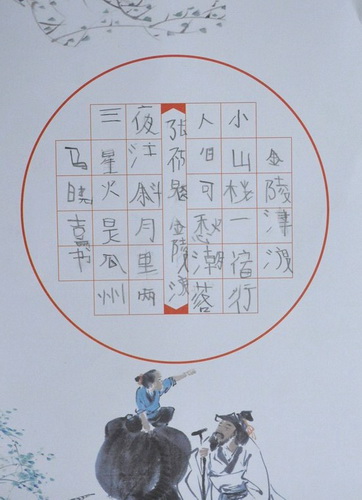 金陵津渡
小山楼一宿行
人自可愁潮落
张祜题金陵渡
夜江斜月里两
三星火是瓜州
马晓喜书